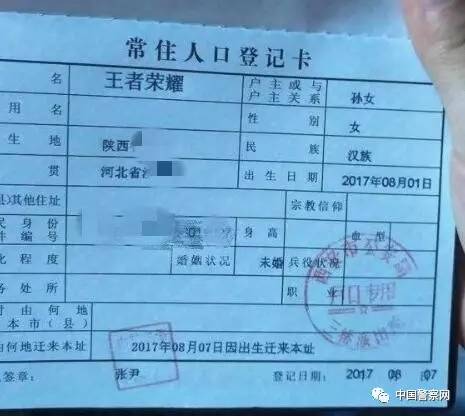 常住人口登记卡
名 王者荣耀 户主或与户主关系 孙女
用名 性别 女
生地 陕西 民族 汉族
贯 河北省 出生日期 2017年08月01日
县)其他住址 宗教信仰
民身份件编号 身高 血型
化程度 婚姻状况 未婚 兵役状况
务处所 职业
时由何地本市(县)
由何地迁来本址 2017年08月07日因出生迁来本址
人签章: 张尹 登记日期: 2017 08 07
西安市公安局
户口专用
中国警察网